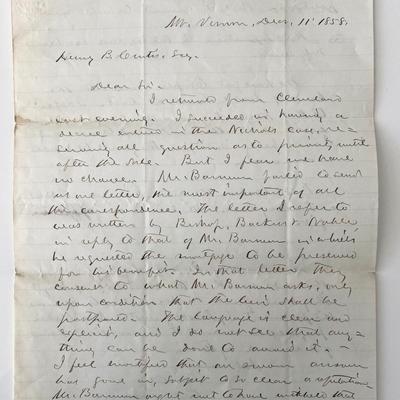 Mt. Vernon, Dec. 11' 1858.
Henry B. Curtis, Esq.
Dear Sir.
I returned from Cleveland
last evening. I succeeded in having a
decree entered in the Nichols case, re-
serving all question as to priority until
after the sale. But I fear we have
no chance. Mr. Barnum failed to send
us one letter, the most important of all
the correspondence. The letter I refer to
was written by Bishop, Backus & Noble
in reply to that of Mr. Barnum in which
he requested the mortgage to be preserved
for his benefit. In that letter they
consent to what Mr. Barnum asks, only
upon condition that the lien shall be
postponed. The language is clear and
explicit, and I do not see that any-
thing can be done to avoid it. -
I feel mortified that an answer
has gone in, subject to so clear a refutation
Mr. Barnum ought not to have withheld that